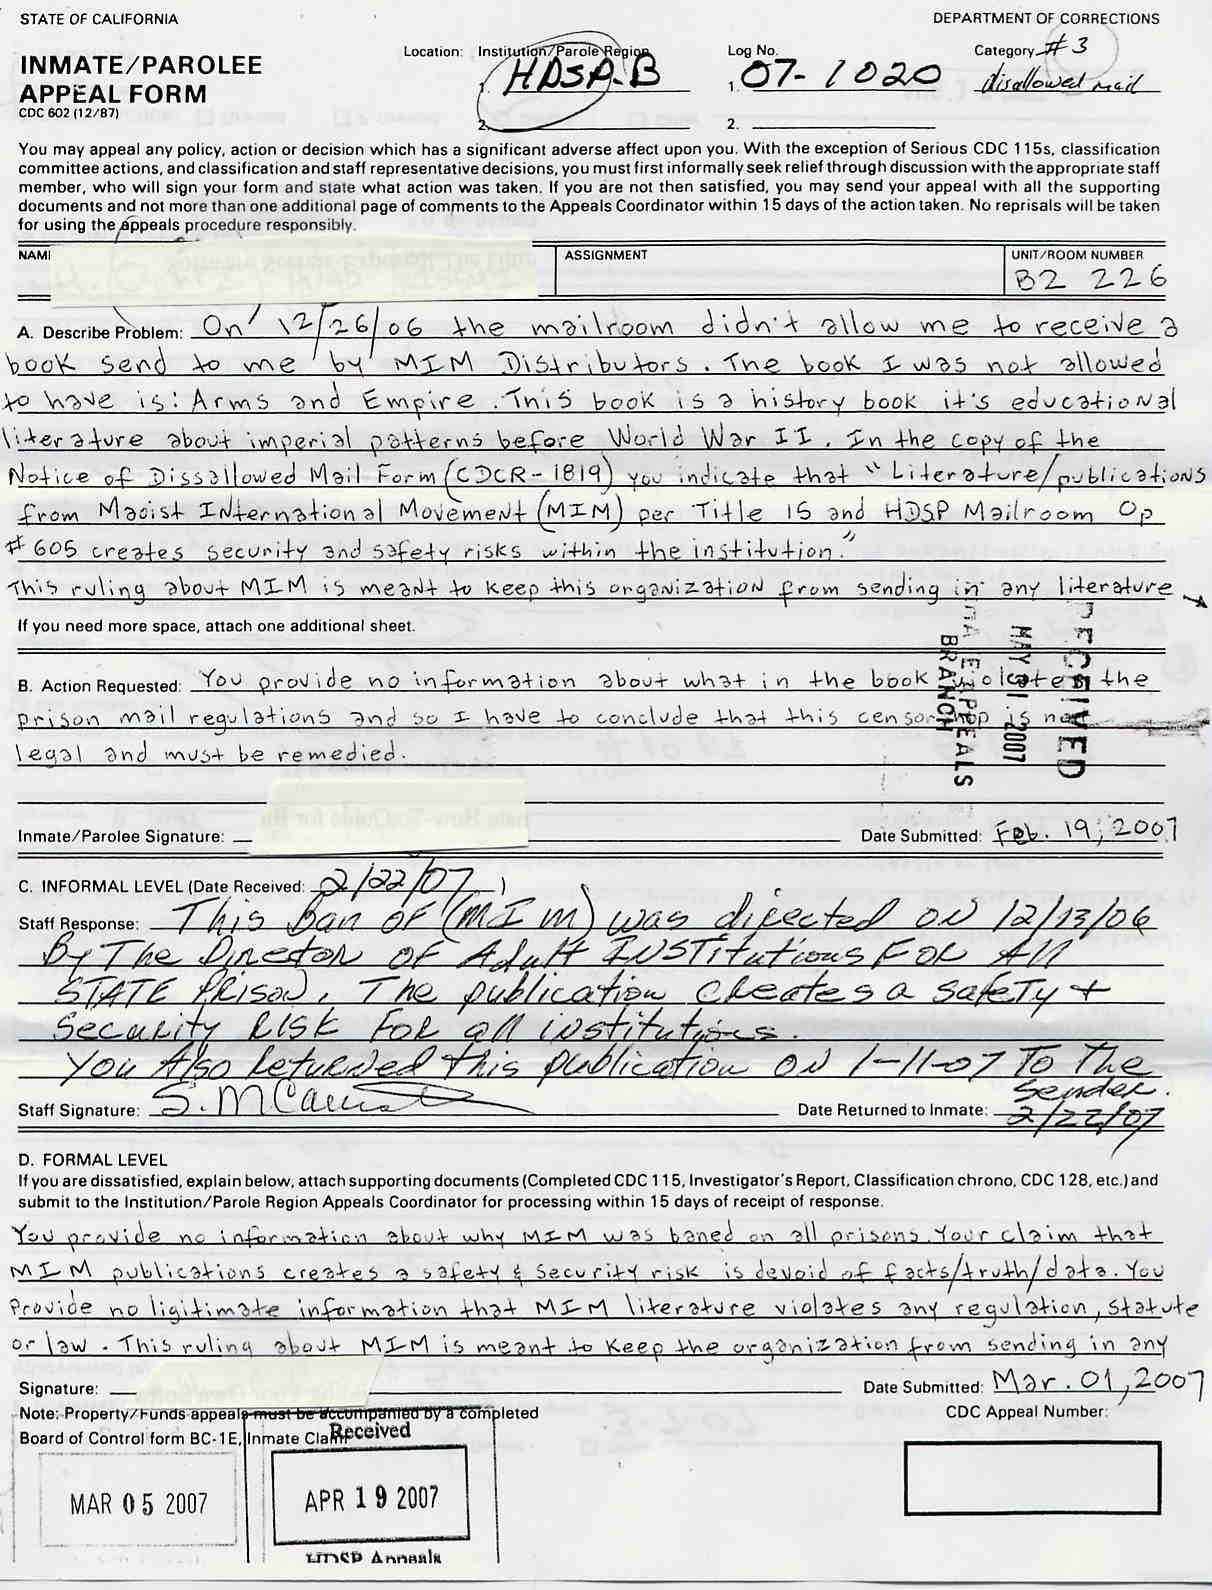 STATE OF CALIFORNIA
DEPARTMENT OF CORRECTIONS
INMATE/PAROLEE
APPEAL FORM
CDC 602 (12/87)
Location: Institution/Parole Region
Log No.
Category #3
1. HDSP-B
1. 07-1020
disallowed mail
2.
2.
You may appeal any policy, action or decision which has a significant adverse affect upon you. With the exception of Serious CDC 115s, classification
committee actions, and classification and staff representative decisions, you must first informally seek relief through discussion with the appropriate staff
member, who will sign your form and state what action was taken. If you are not then satisfied, you may send your appeal with all the supporting
documents and not more than one additional page of comments to the Appeals Coordinator within 15 days of the action taken. No reprisals will be taken
for using the appeals procedure responsibly.
NAM
ASSIGNMENT
UNIT/ROOM NUMBER
B2 226
A. Describe Problem: On 12/26/06 the mailroom didn't allow me to receive a
book send to me by MIM Distributors. The book I was not allowed
to have is: Arms and Empire. This book is a history book it's educational
literature about imperial patterns before World War II. In the copy of the
Notice of Dissallowed Mail Form (CDCR-1819) you indicate that "Literature/publications
from Maoist International Movement (MIM) per Title 15 and HDSP Mailroom Op
# 605 creates security and safety risks within the institution."
This ruling about MIM is meant to keep this organization from sending in any literature
If you need more space, attach one additional sheet.
B. Action Requested: You provide no information about what in the book violates the
prison mail regulations and so I have to conclude that this censorship is not
legal and must be remedied.
RECEIVED
MAY 2007
APPEALS
BRANCH
Inmate/Parolee Signature:
Date Submitted: Feb. 19, 2007
C. INFORMAL LEVEL (Date Received: 2/22/07 )
Staff Response: This Ban OF (MIM) was directed ON 12/13/06
By The Director OF Adult INSTitutions FOR All
STATE PRison. The publication Creates a safeTy +
Security RISK FOR all institutions.
You Also Returned this publication ON 1-11-07 To The
sender.
Staff Signature:
Date Returned to Inmate: 2/22/07
D. FORMAL LEVEL
If you are dissatisfied, explain below, attach supporting documents (Completed CDC 115, Investigator's Report, Classification chrono, CDC 128, etc.) and
submit to the Institution/Parole Region Appeals Coordinator for processing within 15 days of receipt of response.
You provide no information about why MIM was baned on all prisons. Your claim that
MIM publications creates a safety & security risk is devoid of facts/truth/data. You
Provide no ligitimate information that MIM literature violates any regulation, statute
or law. This ruling about MIM is meant to keep the organization from sending in any
Signature:
Date Submitted: Mar. 01, 2007
Note: Property/Funds appeals must be accompanied by a completed
CDC Appeal Number:
Board of Control form BC-1E, Inmate Claim
Received
MAR 05 2007
APR 19 2007
HDSP Appeals